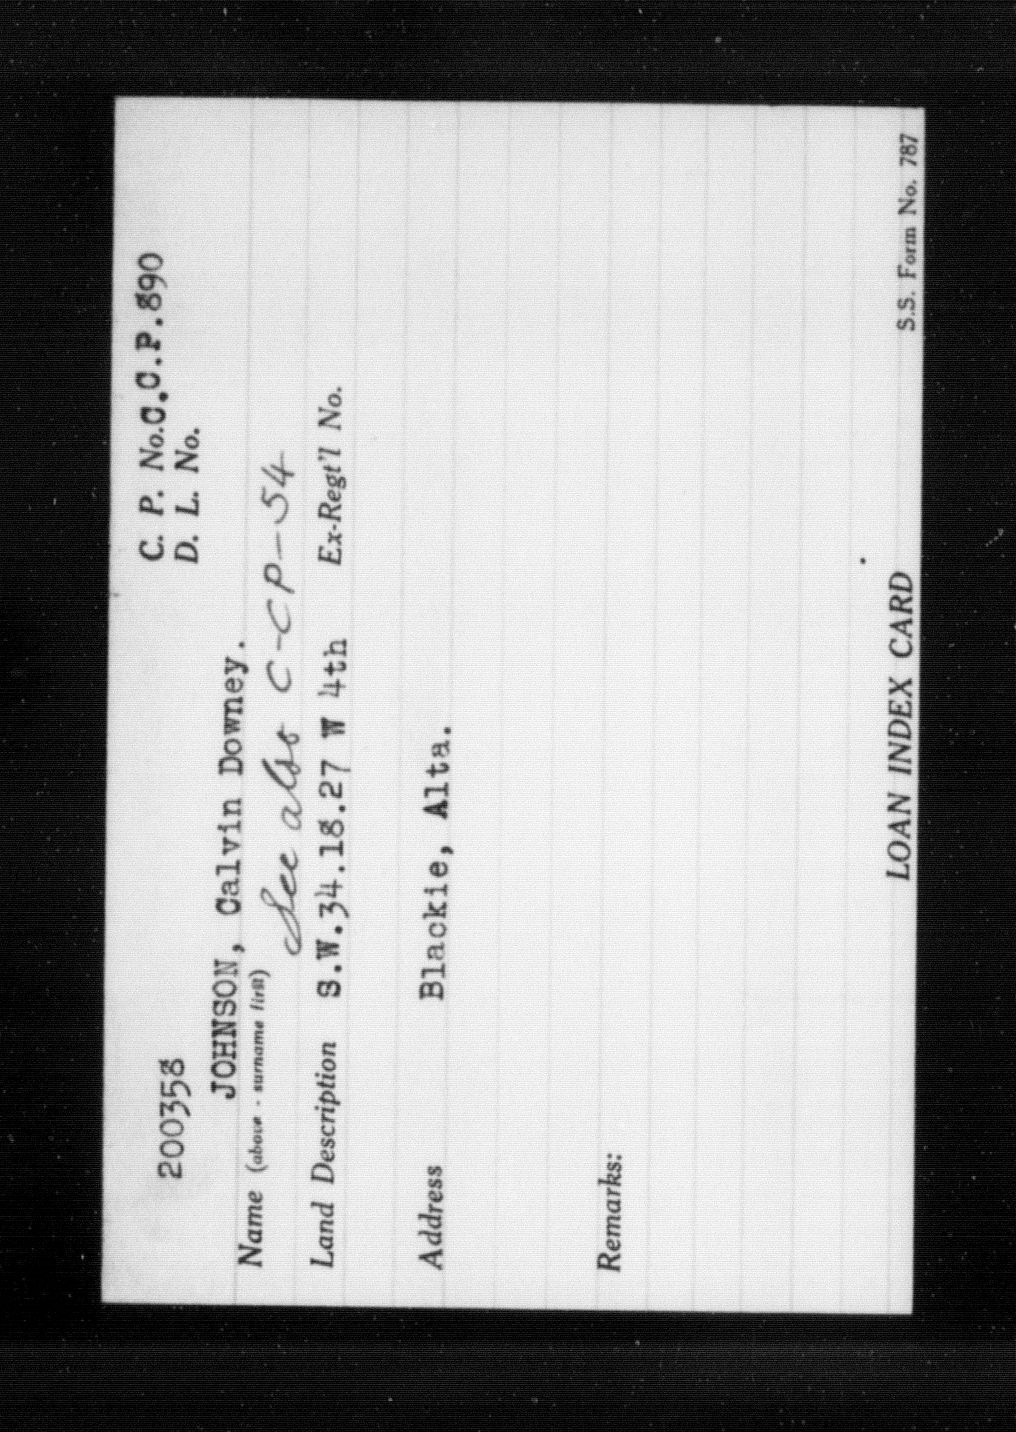 200358
C. P. No. C.C.P.890
D. L. No.
JOHNSON, Calvin Downey.
Name (above - surname first)
See also C-CP-54
Land Description S.W.34.18.27 W 4th Ex-Regt'l No.
Address Blackie, Alta.
Remarks:
LOAN INDEX CARD
S.S. Form No. 787